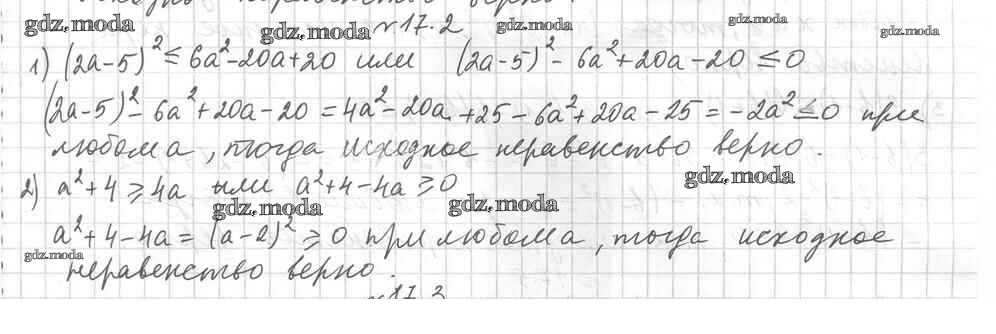 gdz.moda gdz.moda №17.2 gdz.moda gdz.moda gdz.moda
1) (2a-5)² ≤ 6a²-20a+20 или (2a-5)² - 6a²+20a-20 ≤ 0
(2a-5)² - 6a²+20a-20 = 4a²-20a+25-6a²+20a-25 = -2a² ≤ 0 при
любом a, тогда исходное неравенство верно.
gdz.moda
2) a²+4 ≥ 4a или a²+4-4a ≥ 0
gdz.moda gdz.moda
a²+4-4a = (a-2)² ≥ 0 при любом a, тогда исходное
gdz.moda
неравенство верно.
№17.3